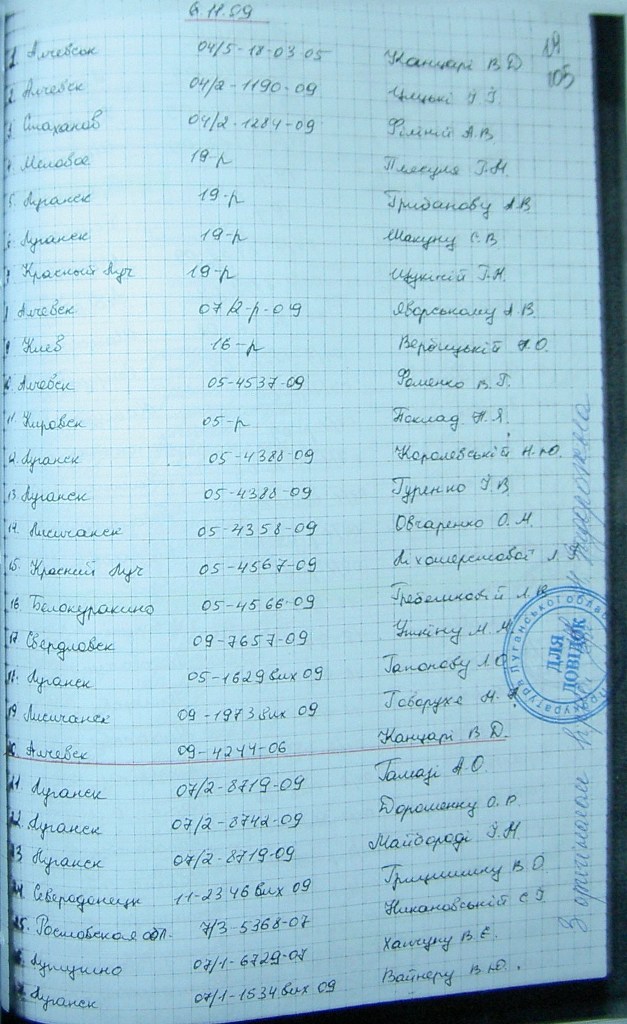 6.11.09
19
105
1. Алчевск 04/5-18-03 05 Канцарі В Д
2. Алчевск 04/2-1190-09
3 Стаханов 04/2-1284-09 А В
4 Меловое 19-р І.М.
5. Луганск 19-р Грибанову А В
6 Луганск 19-р Шакуну С.В
7 Красный Луч 19-р
8 Алчевск 07/2-р-09 Яворському А В.
9 Киев 16-р Вербицькій О.
10 Алчевск 05-4537-09 Фоменко В.Г.
11. Кировск 05-р Поклад Н.Я.
12. Луганск 05-4388-09 Королевській Н.Ю.
13. Луганск 05-4388-09 Гуренко І.В.
14. Лисичанск 05-4358-09 Овчаренко О.М.
15. Красний Луч 05-4567-09 Лихошерстовой
16. Белокуракино 05-4566-09 Гребенниковій
17 Свердловск 09-7657-09 М.М.
18. Луганск 05-1629вих 09 Гапонову
19 Лисичанск 09-1973вих 09 Говорухе
20 Алчевск 09-4244-06 Канцарі В Д.
21. Луганск 07/2-8719-09 А.О.
22. Луганск 07/2-8742-09 Дорошенку О.Р.
23 Луганск 07/2-8719-09 Майбороді
24. Северодонецк 11-2346вих 09 Грицишину В.О.
25. Ростовская обл. 7/3 5368-07 Никановській
26 Лутугино 07/1-6729-07 В.Є.
27 Луганск 07/1-1534вих 09 Вайнеру В.Ю.
З оригіналом
Прокуратура Луганської області
ДЛЯ
ДОВІДОК